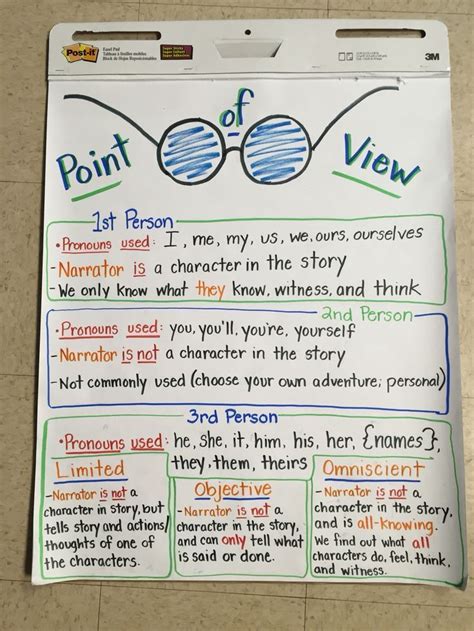 Post-it
Easel Pad
Tableau à feuilles mobiles
Block de Hojas Reposicionables
Super Sticky
3M
Point of View
1st Person
• Pronouns used: I, me, my, us, we, ours, ourselves
- Narrator is a character in the story
- We only know what they know, witness, and think
2nd Person
Pronouns used: you, you'll, you're, yourself
- Narrator is not a character in the story
- Not commonly used (choose your own adventure; personal)
3rd Person
• Pronouns used: he, she, it, him, his, her, {names},
they, them, theirs
Limited
- Narrator is not a
character in story, but
tells story and actions/
thoughts of one of
the characters.
Objective
- Narrator is not a
character in the story,
and can only tell what
is said or done.
Omniscient
- Narrator is not a
character in the story
and is all-knowing.
We find out what all
characters do, feel, think,
and witness.